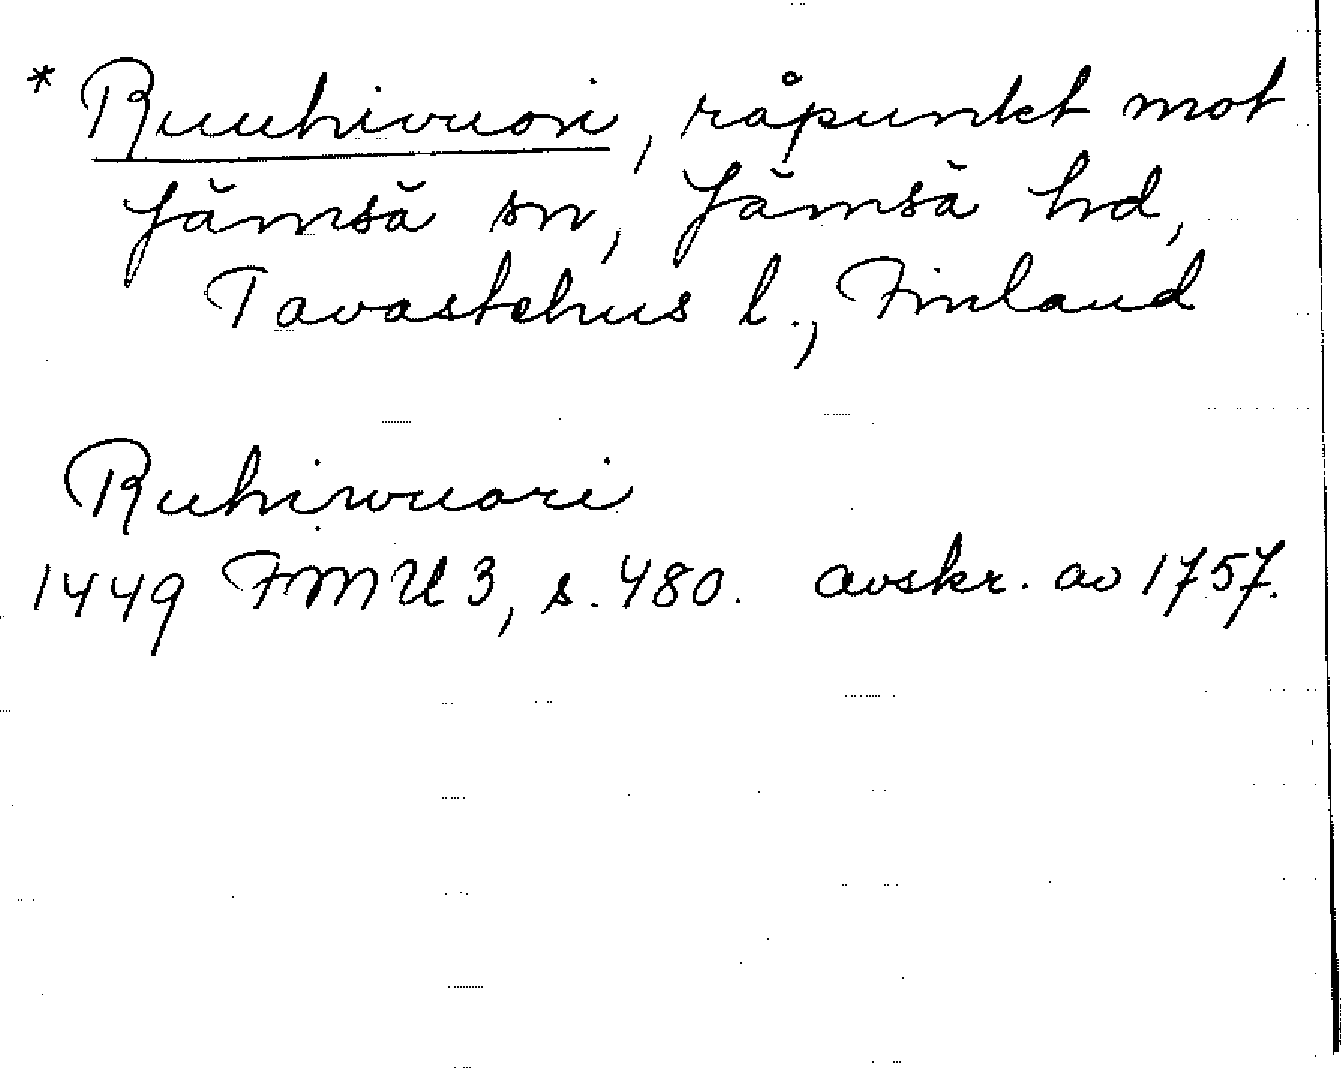 * Ruuhivuori, råpunkt mot
Jämsä sn, Jämsä hd,
Tavastehus l., Finland
Ruhiwuori
1449 FMU 3, s. 480. avskr. av 1757.